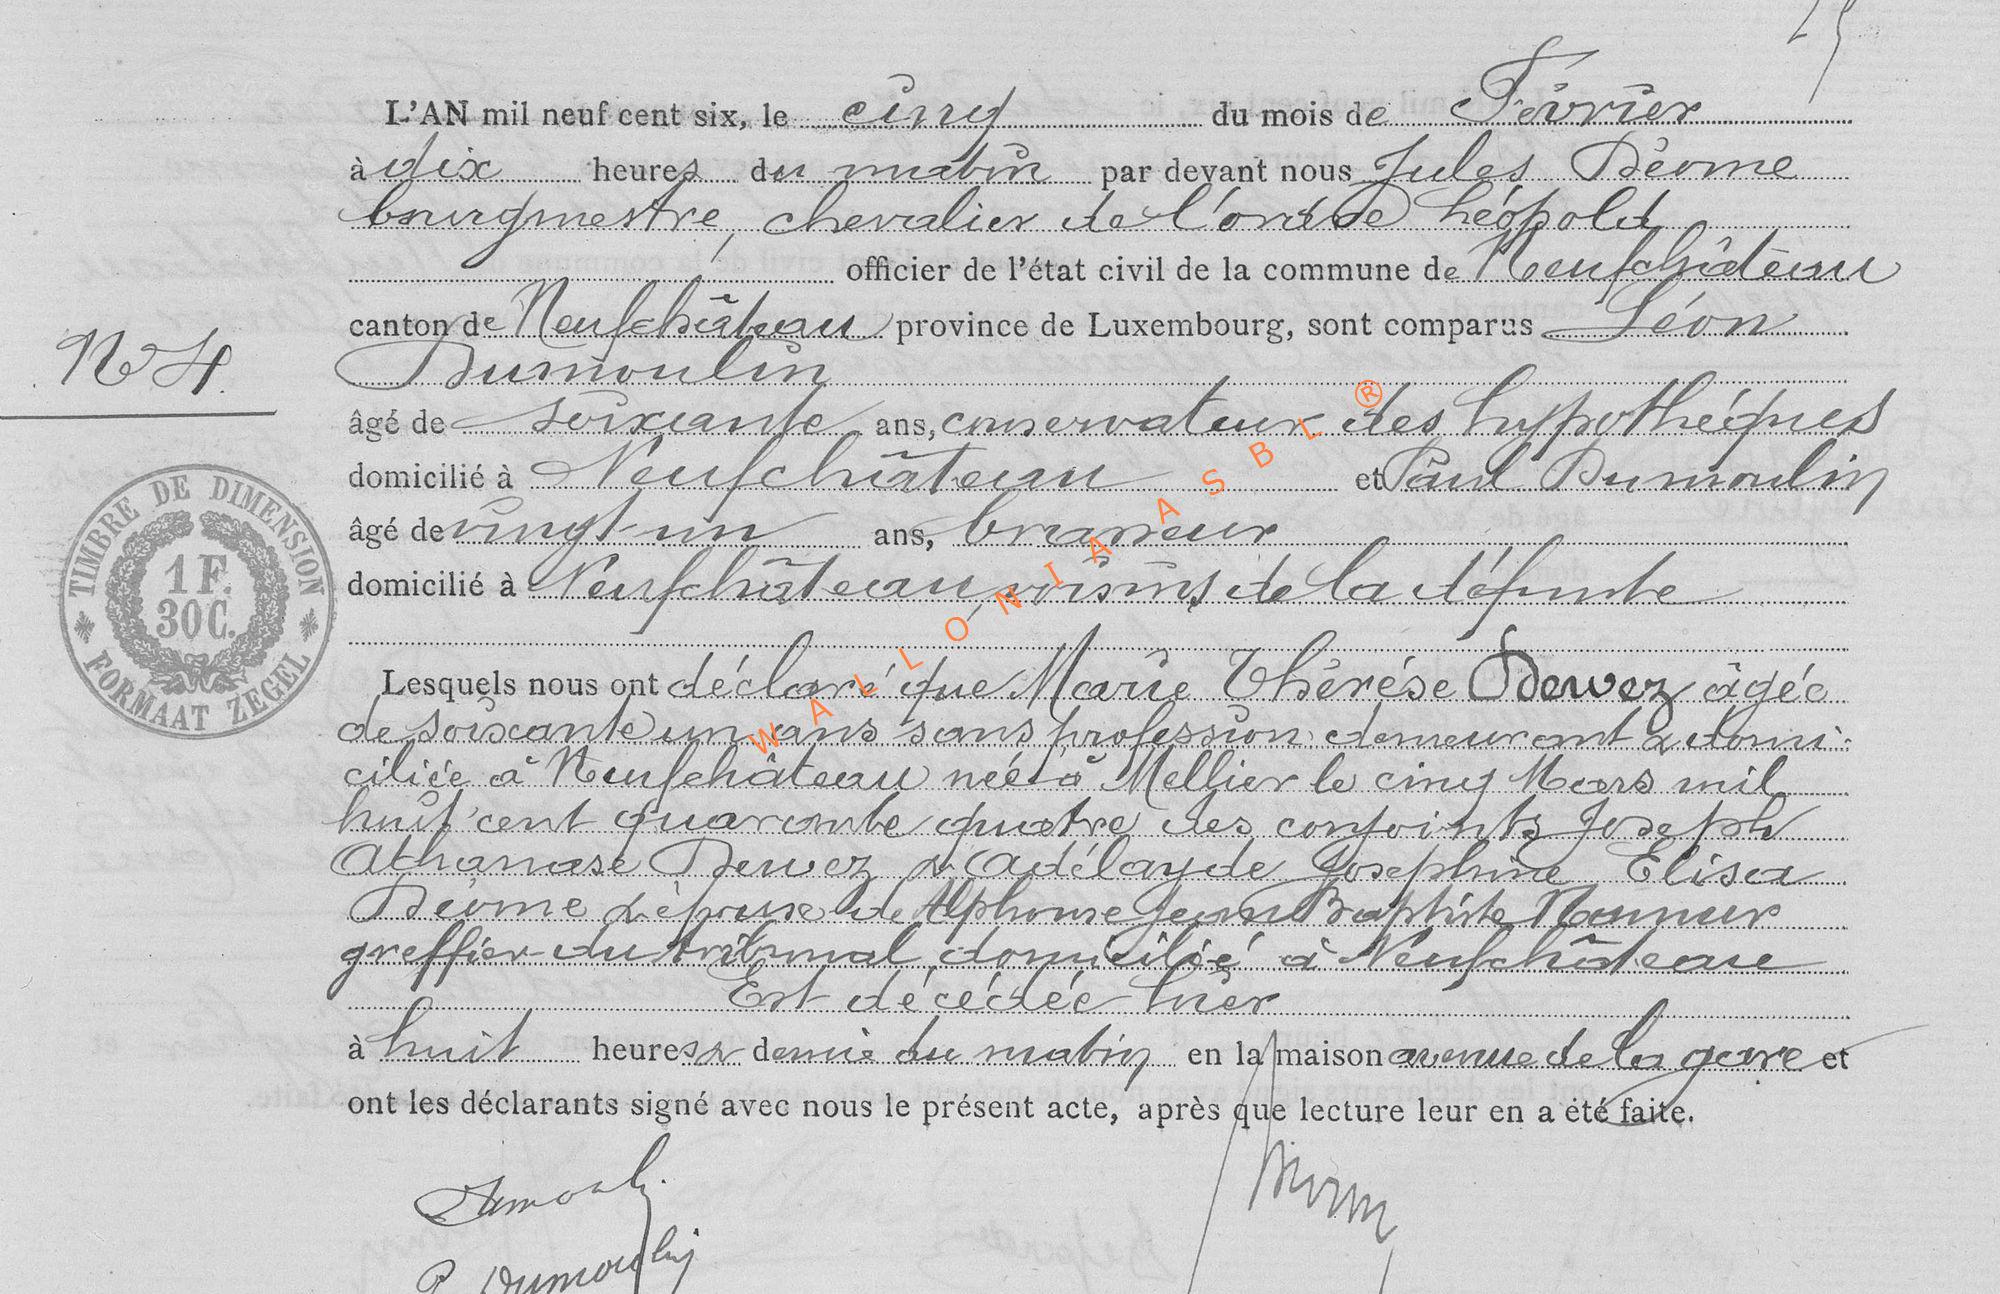 L'AN mil neuf cent six, le cinq du mois de Février
à dix heures du matin par devant nous Jules Déome
bourgmestre, chevalier de l'ordre Léopold
officier de l'état civil de la commune de Neufchâteau
canton de Neufchâteau province de Luxembourg, sont comparus Léon
Dumoulin
N° 4
âgé de soixante ans, conservateur des hypothéques
domicilié à Neufchâteau et Paul Dumoulin
âgé de vingt-un ans, brasseur
domicilié à Neufchâteau, voisins de la défunte
TIMBRE DE DIMENSION
1 F.
30 C.
FORMAAT ZEGEL
Lesquels nous ont déclaré que Marie Thérése Dewez âgée
de soixante un ans sans profession demeurant & domi-
ciliée à Neufchâteau née à Mellier le cinq Mars mil
huit cent quarante quatre des conjoints Joseph
Athanase Dewez & Adélayde Josephine Elisa
Déome & épouse de Alphonse Jean Baptiste
greffier du tribunal domicilié à Neufchâteau
Est décédée hier
à huit heures & demie du matin en la maison avenue de la gare et
ont les déclarants signé avec nous le présent acte, après que lecture leur en a été faite.
Dumoulin
P Dumoulin
WALLONIA ASBL ®